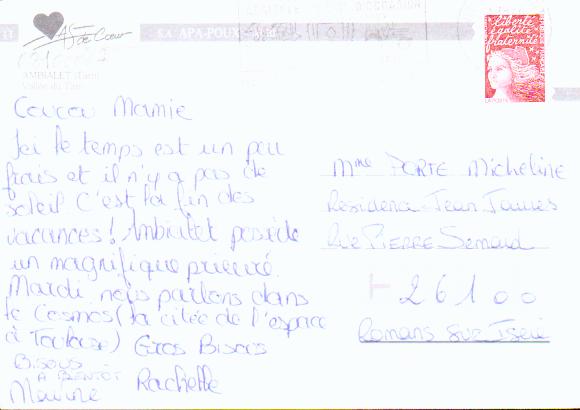 As de Coeur
APA-POUX
AMBIALET (Tarn)
Vallée du Tarn
liberté
égalité
fraternité
LA POSTE
Coucou Mamie
Ici le temps est un peu
frais et il n'y a pas de
soleil C'est la fin des
vacances! Ambialet possède
un magnifique prieuré.
Mardi nous partons dans
le Cosmos (la citée de l'espace
à Toulouse) Gros Bisous
Bisous
A BIENTÔT
Rachelle
Mme PORTE Micheline
Residence Jean Jaures
Rue PIERRE Semard
26100
Romans sur Isère